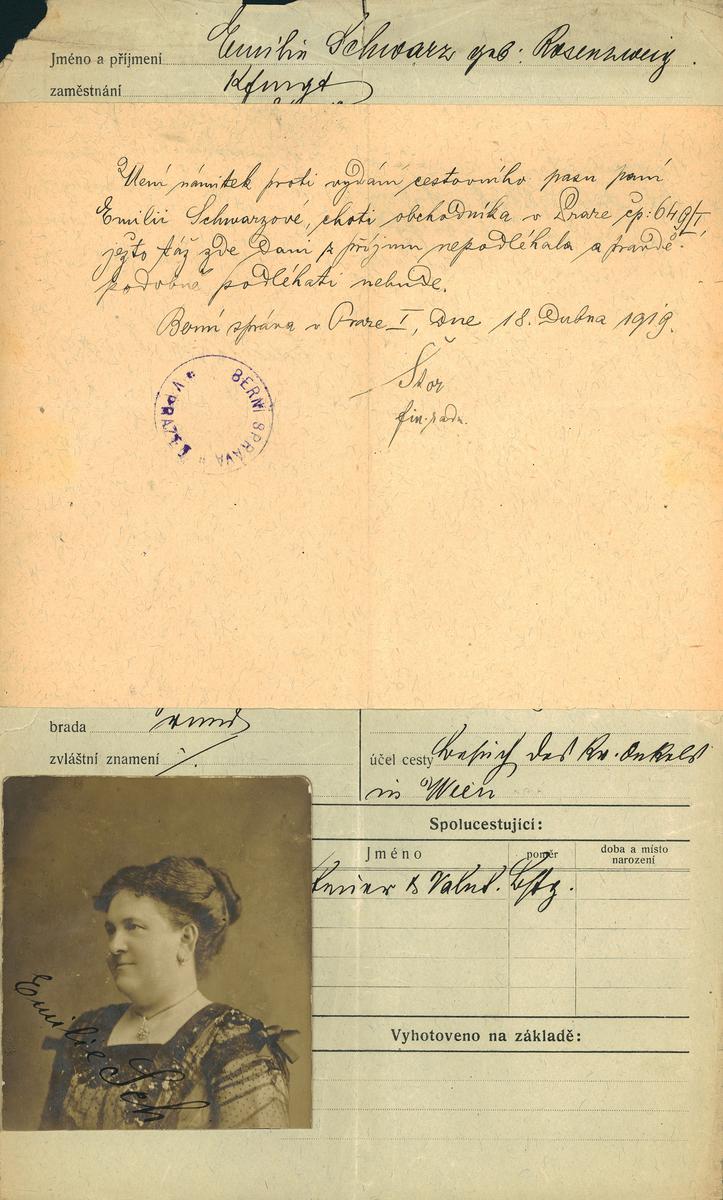 Jméno a příjmení Emilie Schwarz geb: Rosenzweig.
zaměstnání
Není námitek proti vydání cestovního pasu paní
Emilii Schwarzové, choti obchodníka v Praze čp: 649/I,
ježto táž zde dani z příjmu nepodléhala a pravdě-
podobně podléhati nebude.
Berní správa v Praze I, dne 18. dubna 1919.
BERNÍ SPRÁVA
Štor
fin. rada.
brada rund
zvláštní znamení
účel cesty Besuch des Onkels
in Wien
Spolucestující:
Jméno
poměr
doba a místo
narození
Steuer & Valut. Bstg.
Vyhotoveno na základě:
Emilie Sch